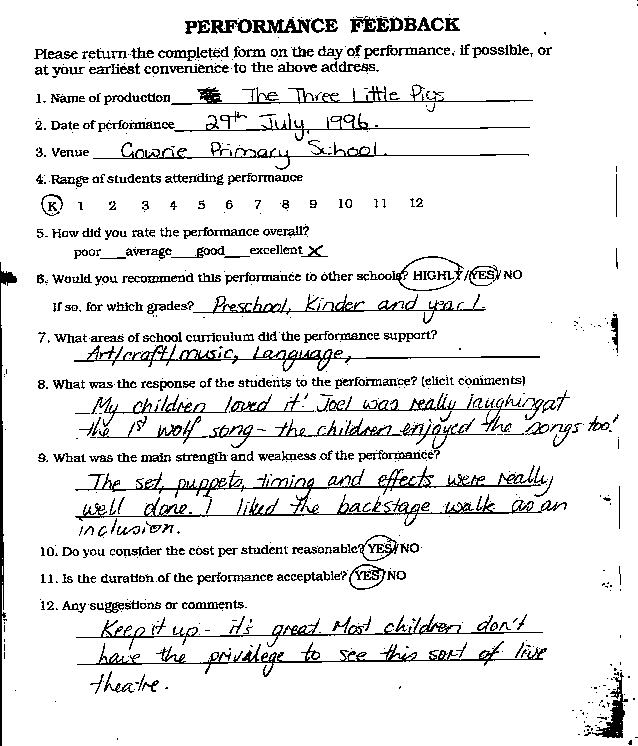 PERFORMANCE FEEDBACK
Please return the completed form on the day of performance, if possible, or
at your earliest convenience to the above address.
1. Name of production The Three Little Pigs
2. Date of performance 29th July, 1996.
3. Venue Gowrie Primary School.
4. Range of students attending performance
K 1 2 3 4 5 6 7 8 9 10 11 12
5. How did you rate the performance overall?
poor average good excellent X
6. Would you recommend this performance to other schools? HIGHLY/YES/NO
If so, for which grades? Preschool, Kinder and year 1
7. What areas of school curriculum did the performance support?
Art/craft/music, Language,
8. What was the response of the students to the performance? (elicit comments)
My children loved it! Joel was really laughing at
the 1st wolf song - the children enjoyed the songs too!
9. What was the main strength and weakness of the performance?
The set, puppets, timing and effects were really
well done. I liked the backstage walk as an
inclusion.
10. Do you consider the cost per student reasonable? YES/NO
11. Is the duration of the performance acceptable? YES/NO
12. Any suggestions or comments.
Keep it up - it's great. Most children don't
have the privilege to see this sort of live
theatre.